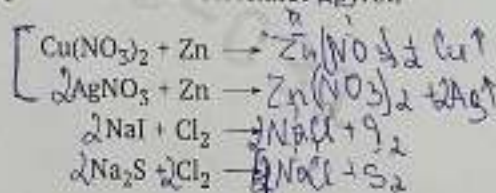 другой,
Cu(NO₃)₂ + Zn → Zn(NO₃)₂ Cu↑
2AgNO₃ + Zn → Zn(NO3)₂ + 2Ag↑
2NaI + Cl₂ → 2NaCl + I₂
2Na₂S + 2Cl₂ → NaCl + S₂